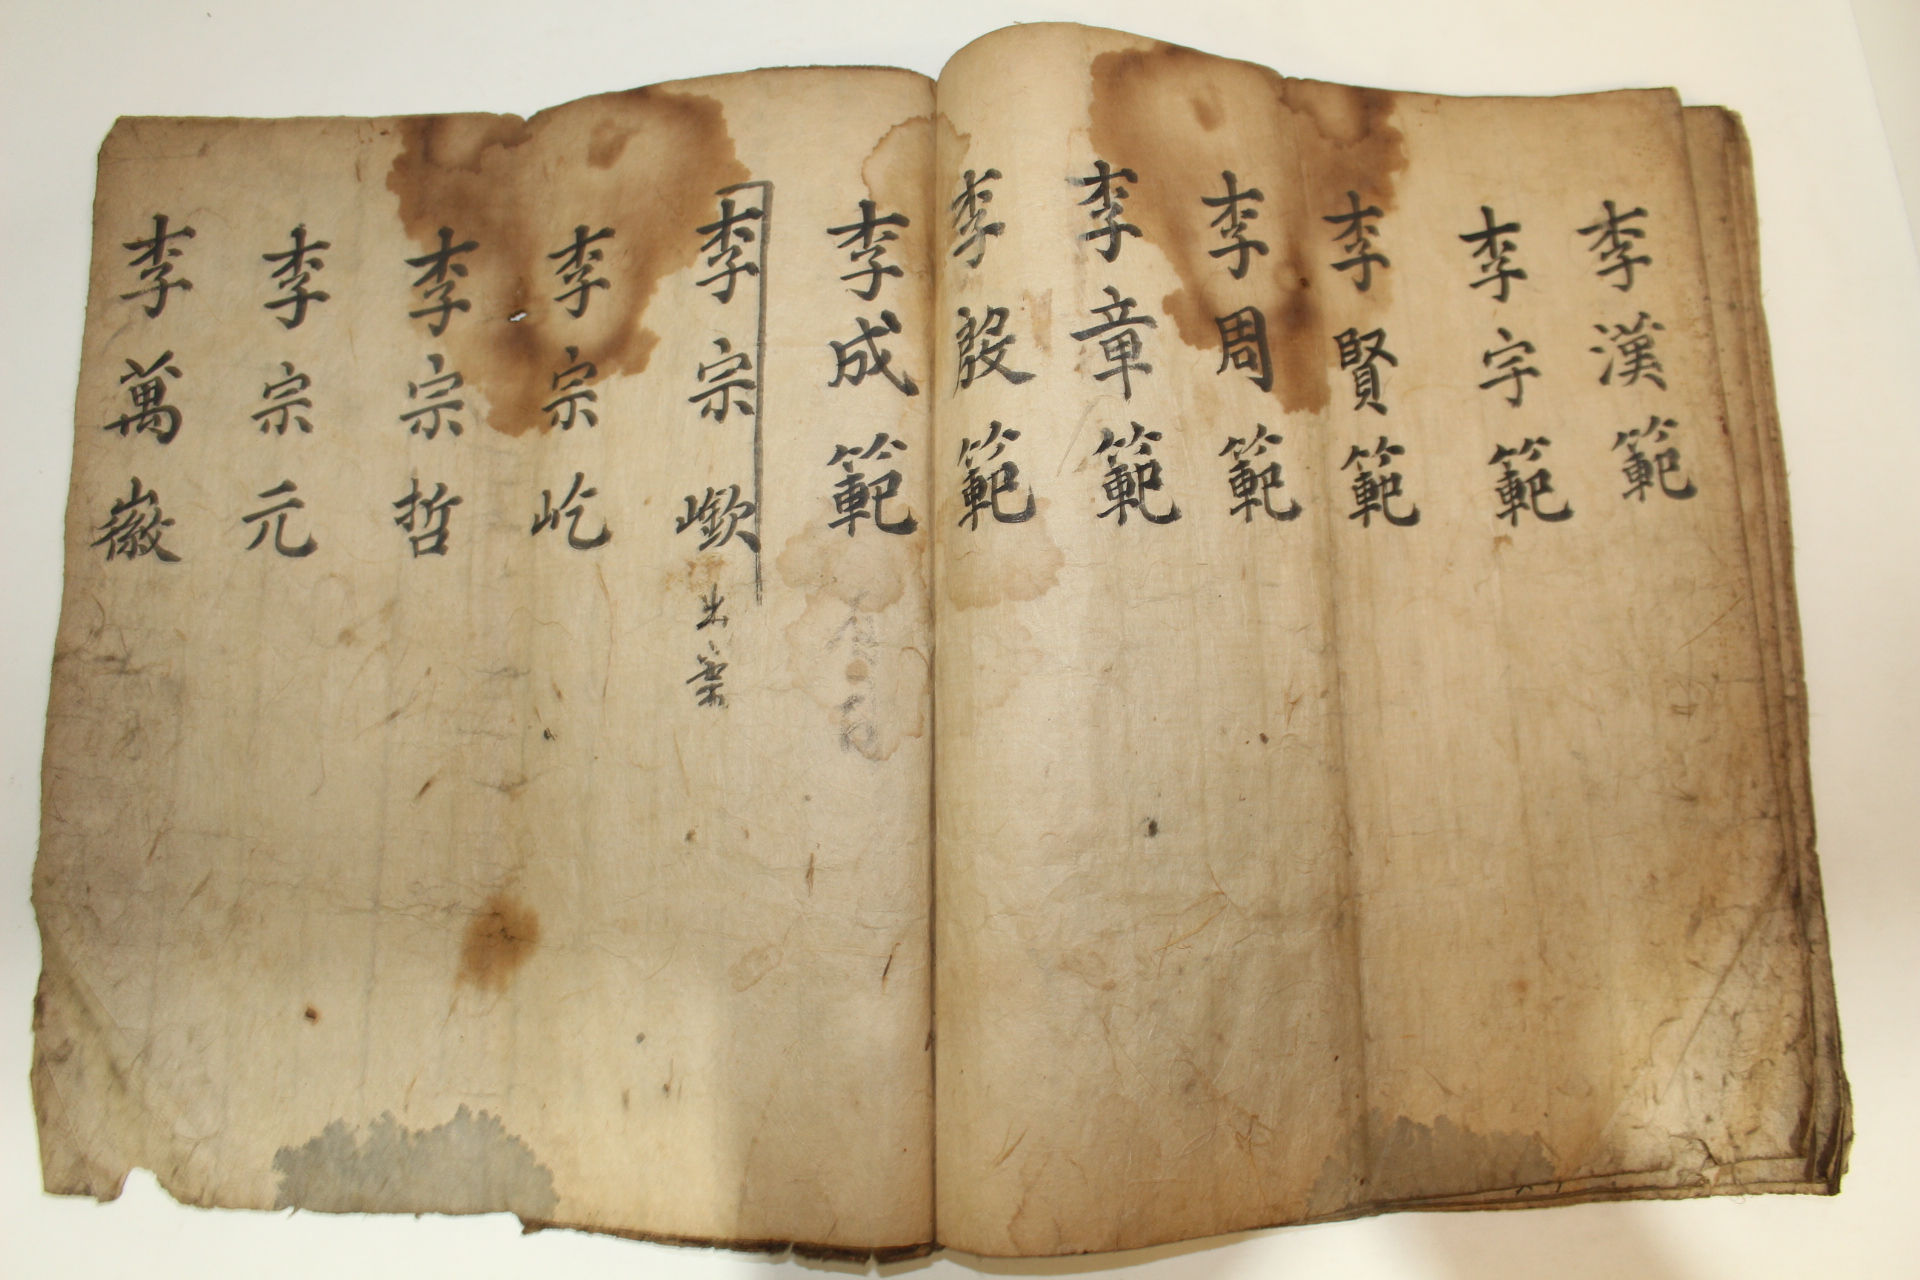 李漢範
李宇範
李賢範
李周範
李章範
李殷範
李成範
李宗嶔
李宗屹
李宗哲
李宗元
李萬徽